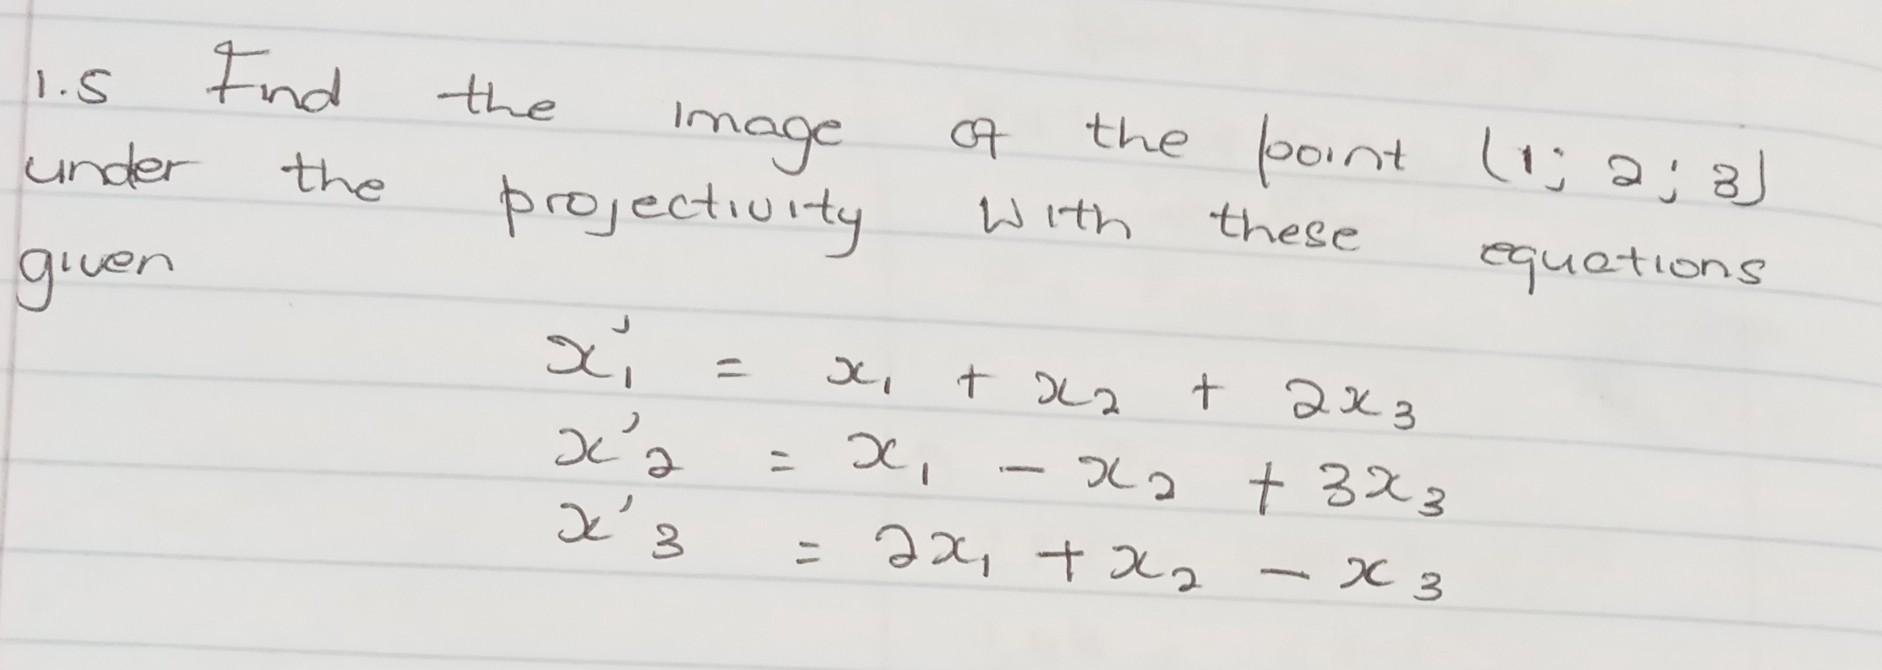 1.5 Find the image of the point (1; 2; 3)
under the projectivity with these equations
given
x'₁ = x₁ + x₂ + 2x₃
x'₂ = x₁ - x₂ + 3x₃
x'₃ = 2x₁ + x₂ - x₃